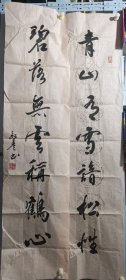 青山有雪諳松性
碧落無雲稱鶴心